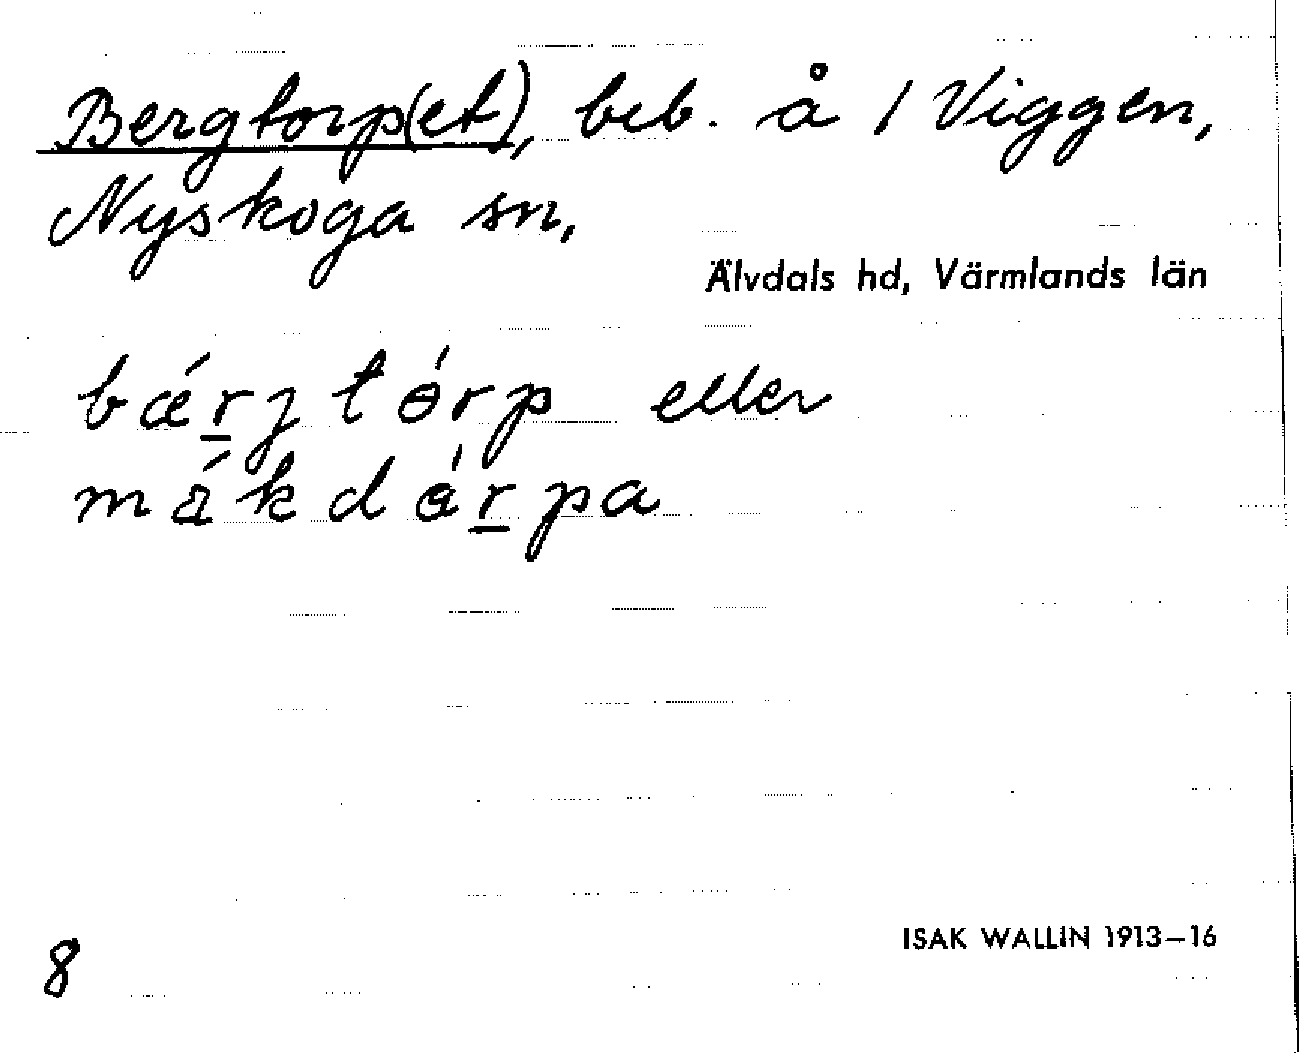 Bergtorp(et), beb. å 1 Viggen,
Nyskoga sn,
Älvdals hd, Värmlands län
bǽr̲j tɵ́rp eller
mákdɵ́r̲pa
8
ISAK WALLIN 1913–16